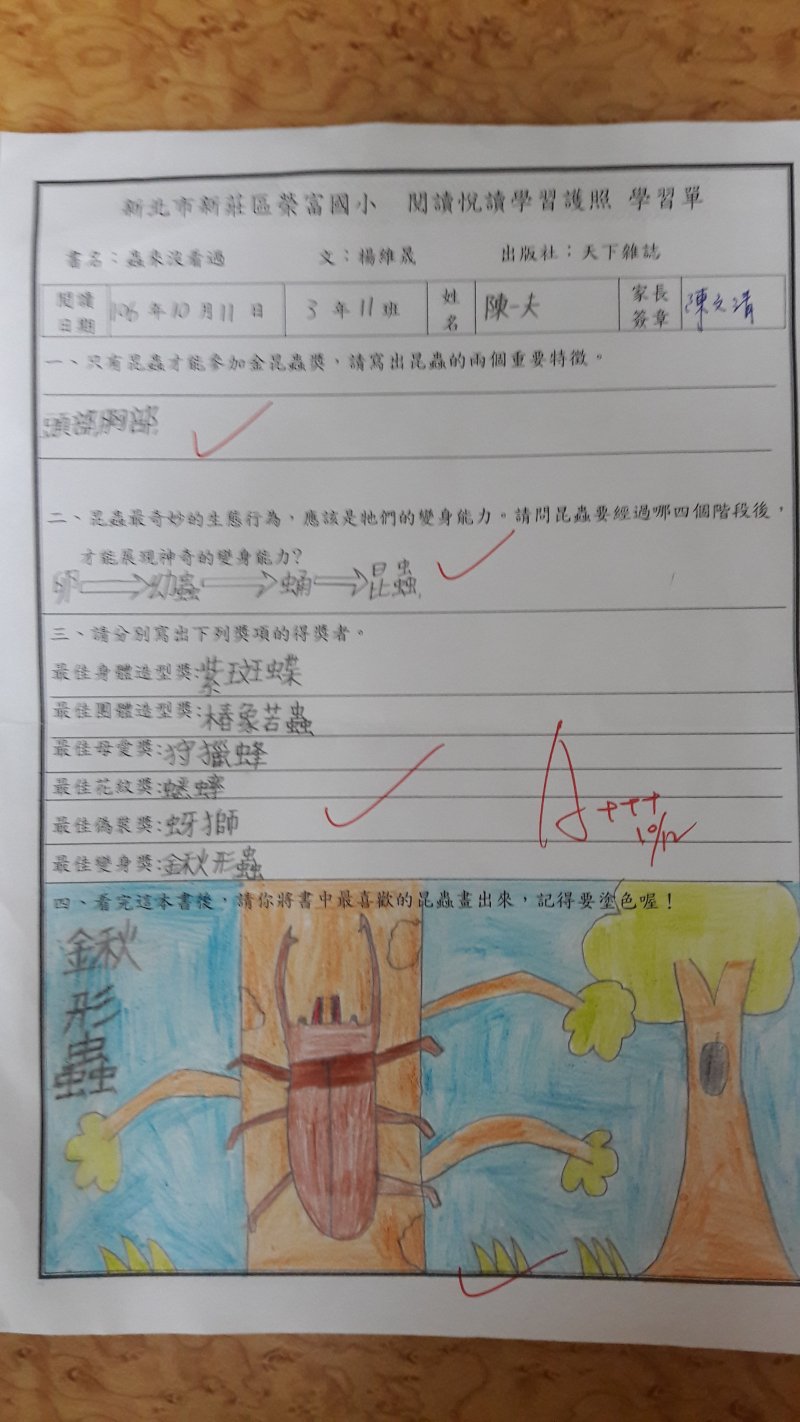 新北市新莊區榮富國小 閱讀悅讀學習護照 學習單
書名：蟲來沒看過 文：楊維晟 出版社：天下雜誌
閱讀日期 106年10月11日 3年11班 姓名 陳一夫 家長簽章 陳文清
一、只有昆蟲才能參加金昆蟲獎，請寫出昆蟲的兩個重要特徵。
頭部胸部
二、昆蟲最奇妙的生態行為，應該是牠們的變身能力。請問昆蟲要經過哪四個階段後，
才能展現神奇的變身能力？
卵⇒幼蟲⇒蛹⇒昆蟲
三、請分別寫出下列獎項的得獎者。
最佳身體造型獎:紫斑蝶
最佳團體造型獎:椿象若蟲
最佳母愛獎:狩獵蜂
最佳花紋獎:蟋蟀
最佳偽裝獎:蚜獅
最佳變身獎:鍬形蟲
A+++
10/12
四、看完這本書後，請你將書中最喜歡的昆蟲畫出來，記得要塗色喔！
鍬形蟲